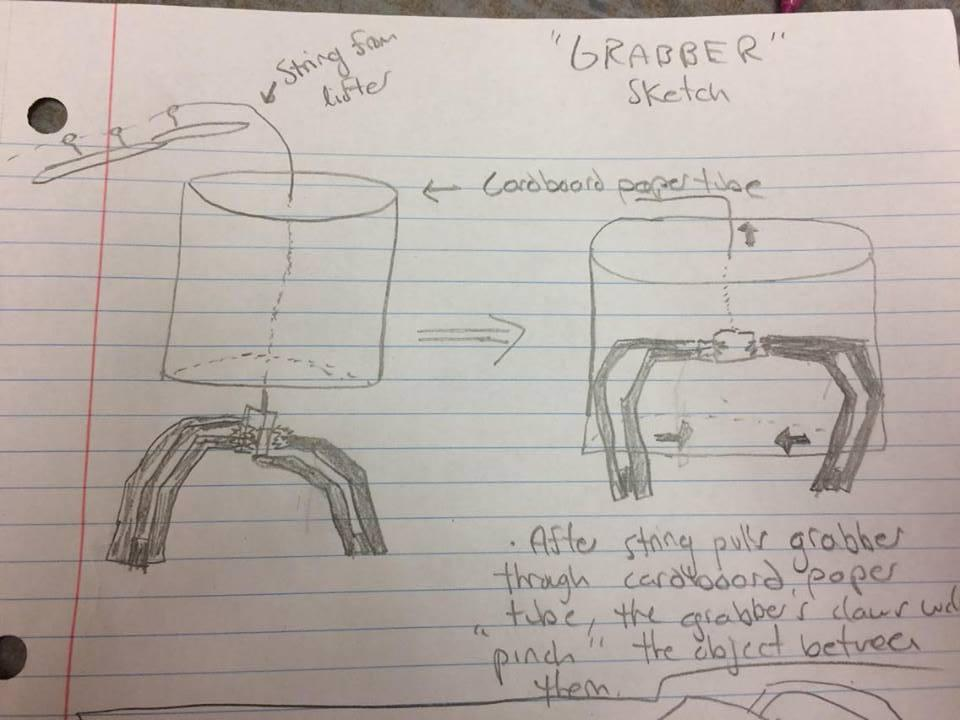 "GRABBER"
Sketch
String from
lifter
Cardboard paper tube
· After string pulls grabber
through cardboard paper
tube, the grabber's claws
"pinch" the object between
them.